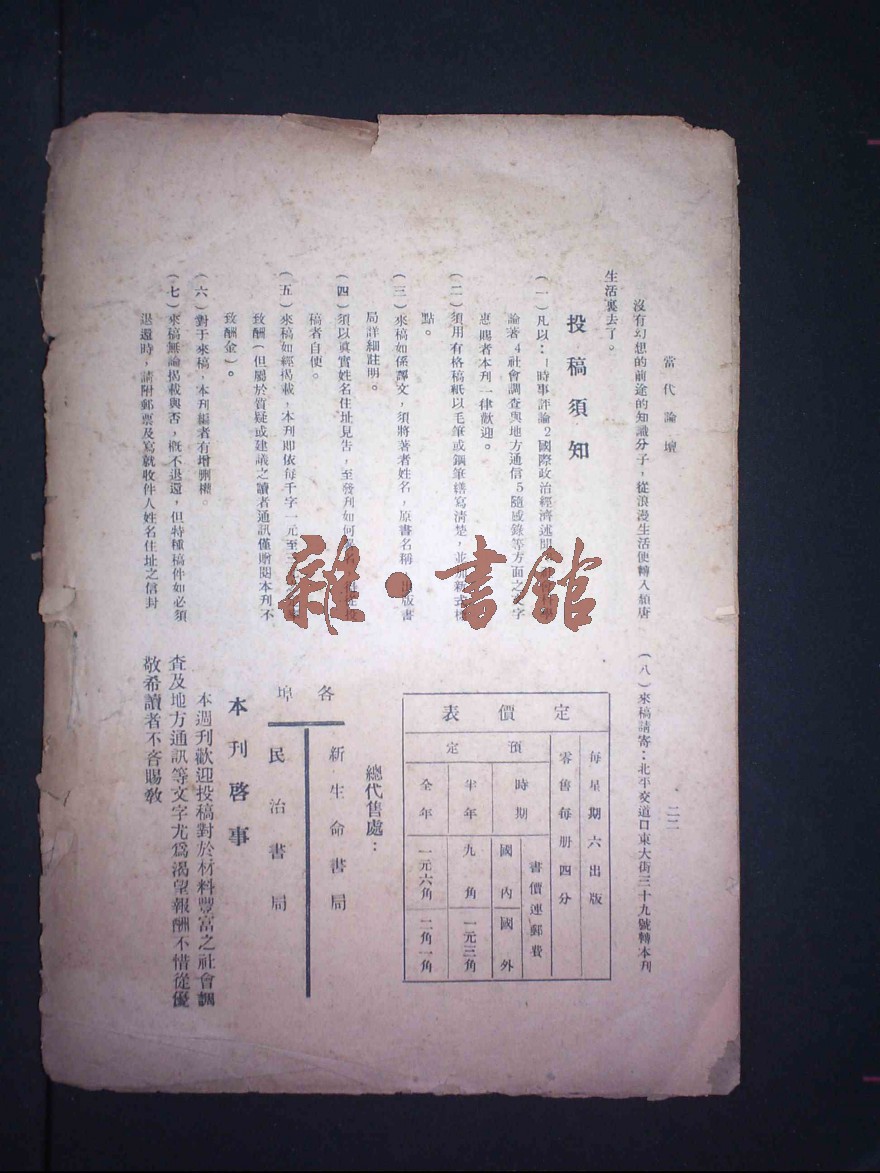 當代論壇
二二
沒有幻想的前途的知識分子，從浪漫生活便轉入頹唐
生活裏去了。
投稿須知
（一）凡以：1時事評論2國際政治經濟述聞
論著4社會調查與地方通信5隨感錄等方面之文字
惠賜者本刊一律歡迎。
（二）須用有格稿紙以毛筆或鋼筆繕寫清楚，並加新式標
點。
（三）來稿如係譯文，須將著者姓名，原書名稱，出版書
局詳細註明。
（四）須以眞實姓名住址見告，至發刊如何
稿者自便。
（五）來稿如經揭載，本刊即依每千字一元至三
致酬（但屬於質疑或建議之讀者通訊僅贈閱本刊不
致酬金）。
（六）對于來稿，本刊編者有增刪權。
（七）來稿無論揭載與否，槪不退還，但特種稿件如必須
退還時，請附郵票及寫就收件人姓名住址之信封
（八）來稿請寄：北平交道口東大街三十九號轉本刊
定價表
每星期六出版
零售每册四分
預定
時期
書價連郵費
國內
國外
半年
九角
一元三角
全年
一元六角
二角一角
總代售處：
各埠
新生命書局
民治書局
本刊啓事
本週刊歡迎投稿對於材料豐富之社會調
查及地方通訊等文字尤爲渴望報酬不惜從優
敬希讀者不吝賜敎
雜·書館